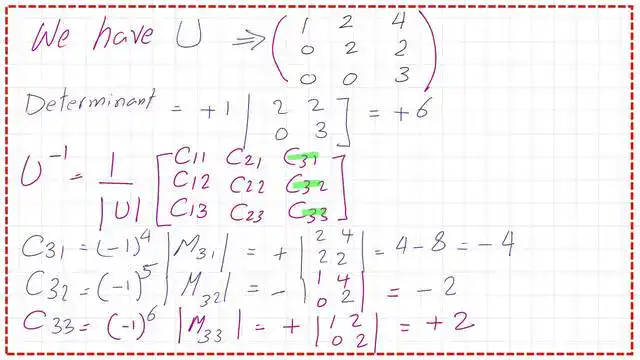 We have U ⇒ ( 1 2 4
0 2 2
0 0 3 )
Determinant = +1 | 2 2
0 3 ] = +6
U⁻¹ = 1/|U| [ C11 C21 C31
C12 C22 C32
C13 C23 C33 ]
C31 = (-1)⁴ |M31| = + | 2 4
2 2 | = 4-8 = -4
C32 = (-1)⁵ |M32| = - | 1 4
0 2 | = -2
C33 = (-1)⁶ |M33| = + | 1 2
0 2 | = +2